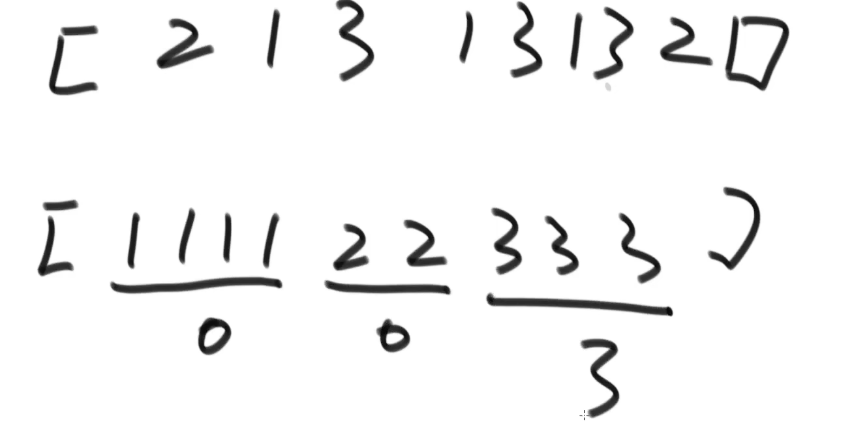 [ 2 1 3 1 3 1 3 2 1 ]
[ 1 1 1 1 2 2 3 3 3 ]
0 0 3